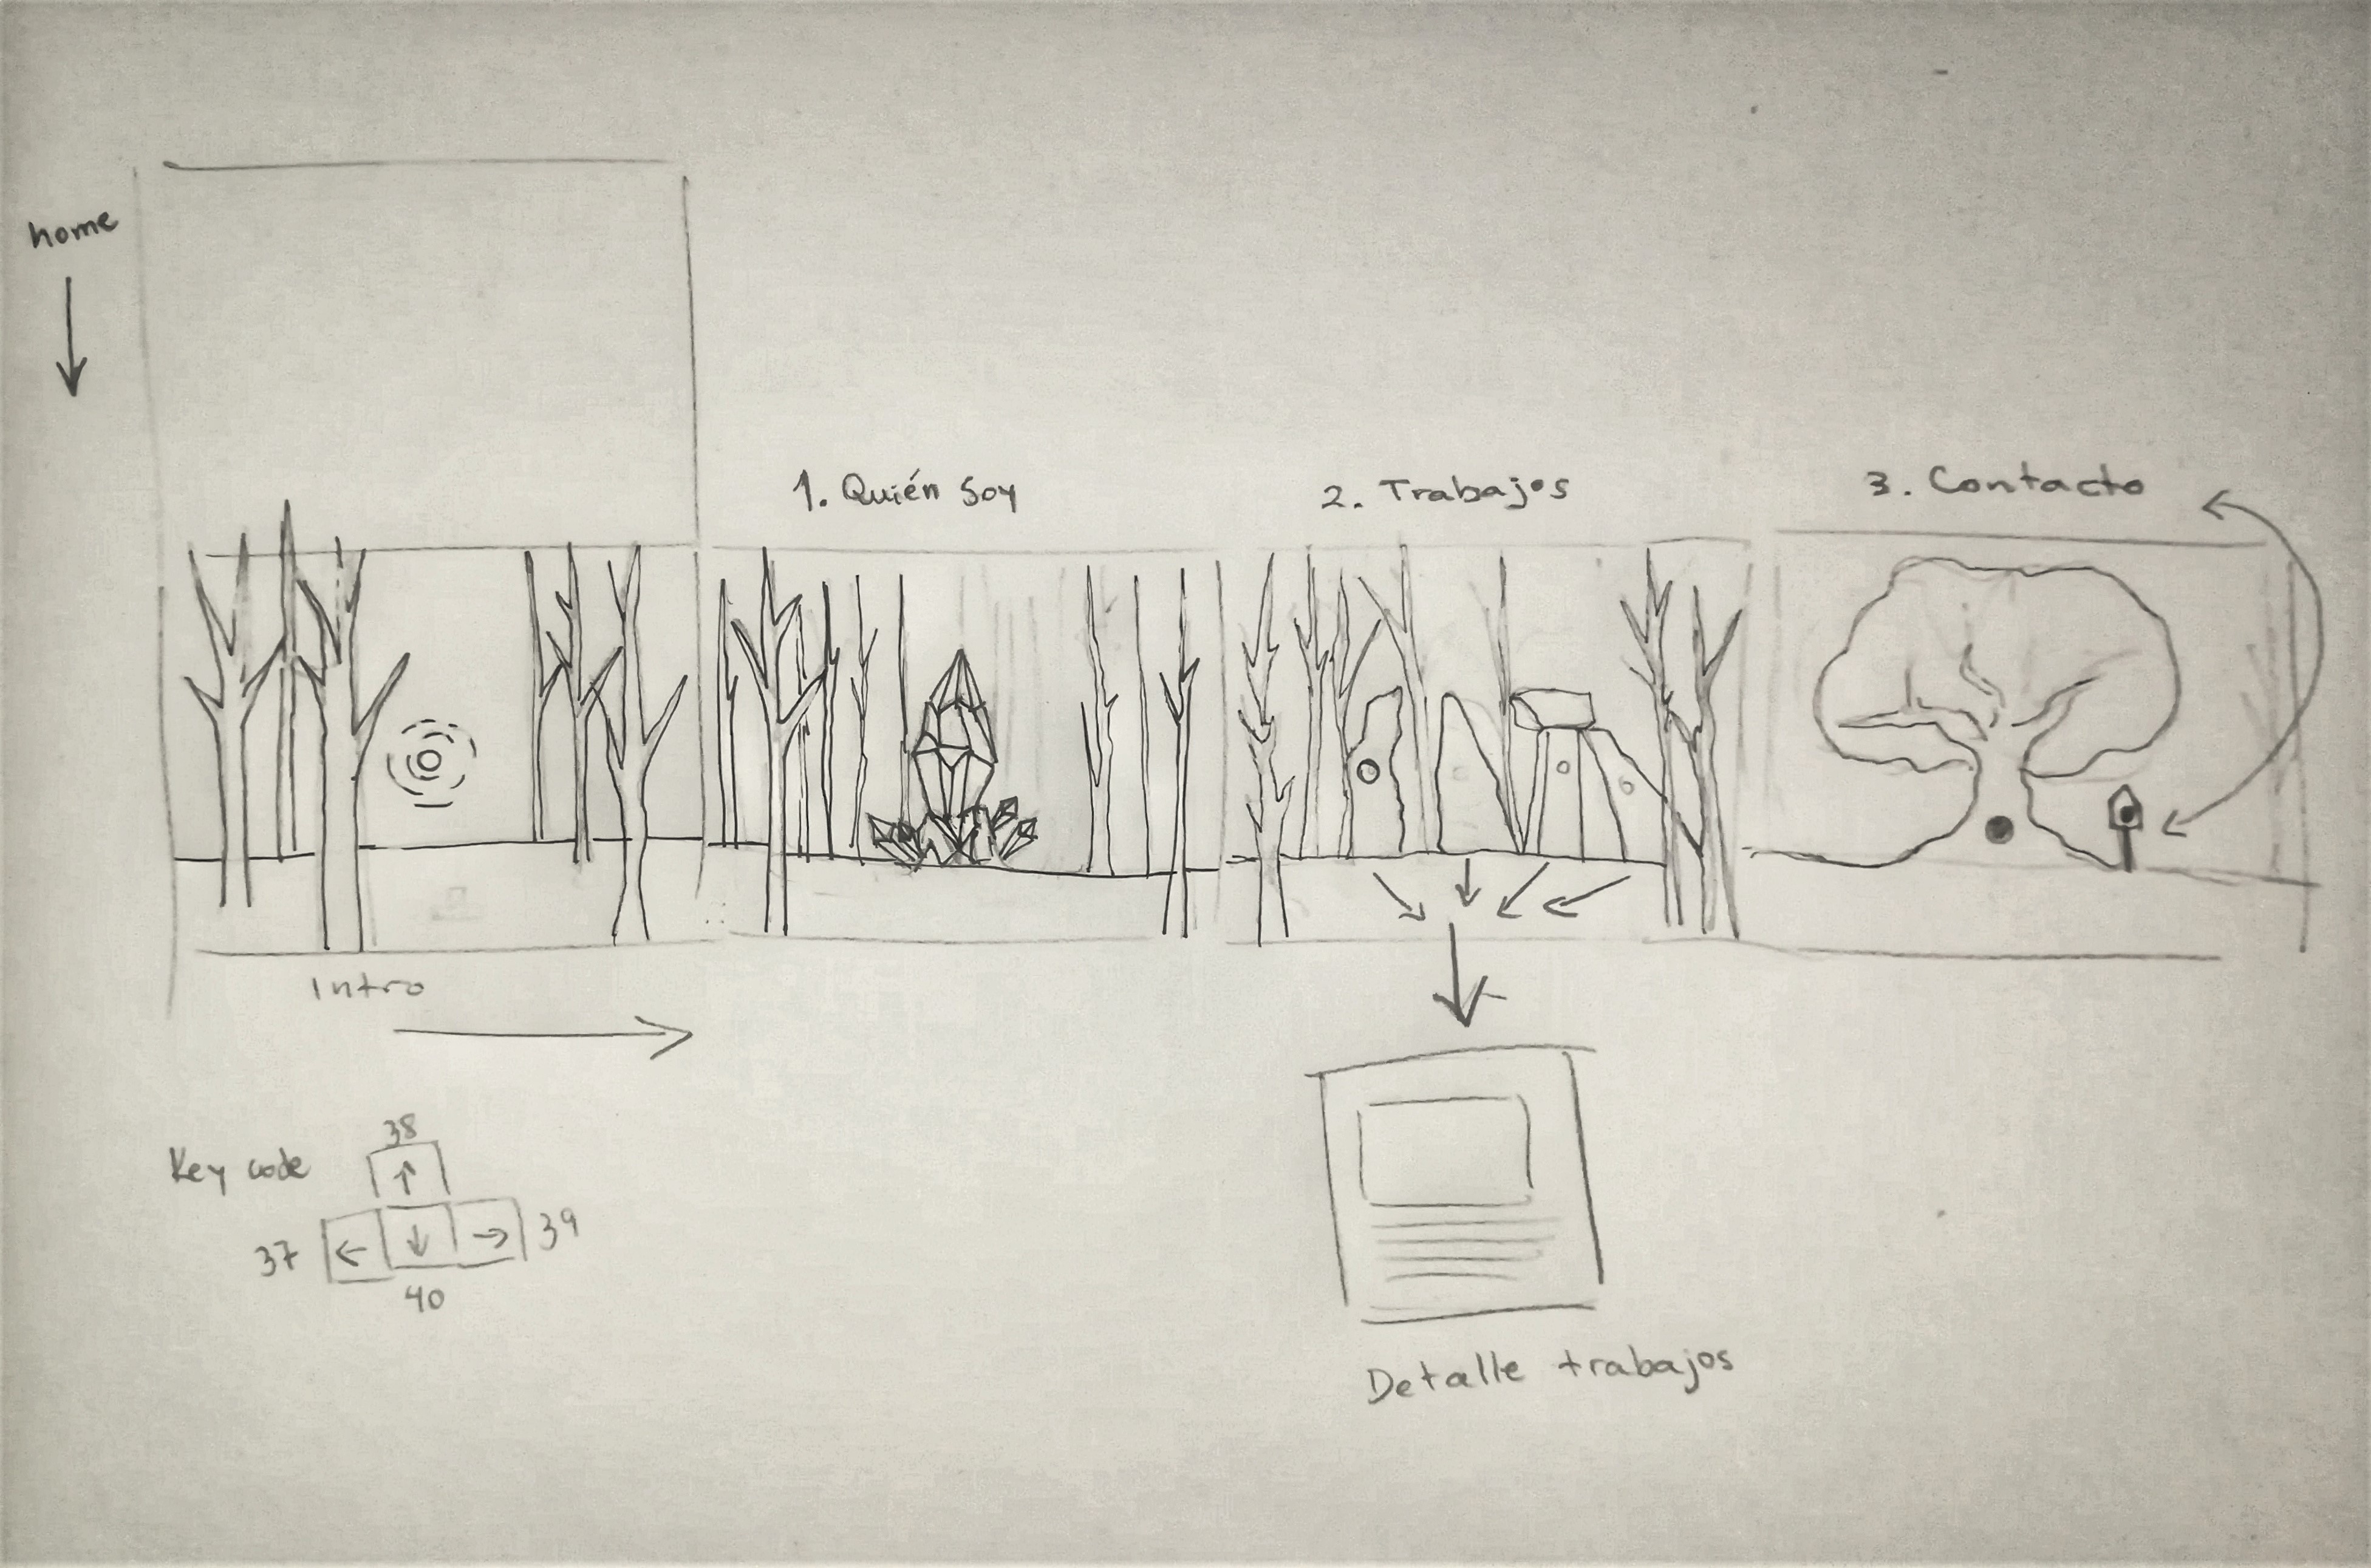 home
1. Quién Soy
2. Trabajos
3. Contacto
Intro
Key code
38
37
39
40
Detalle trabajos